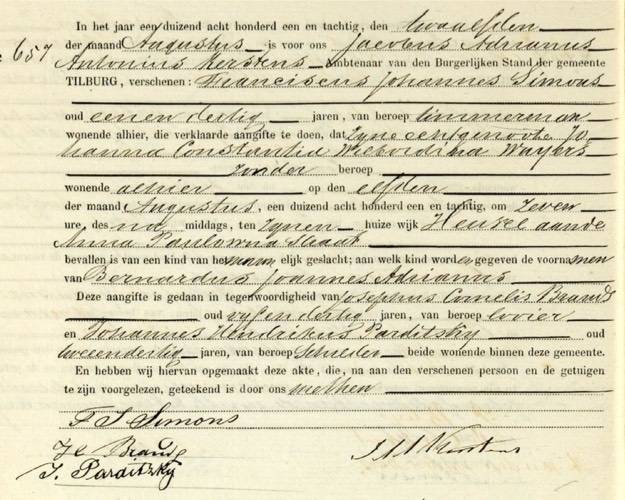 In het jaar een duizend acht honderd een en tachtig, den twaalfden
der maand Augustus is voor ons Jacobus Adrianus
№ 657
Antonius Kerstens Ambtenaar van den Burgerlijken Stand der gemeente
TILBURG, verschenen: Franciscus Johannes Simons
oud eenendertig jaren, van beroep timmerman
wonende alhier, die verklaarde aangifte te doen, dat zijne echtgenoote Jo
hanna Constantia Wiebordina Wayers
zonder beroep
wonende alhier op den elfden
der maand Augustus, een duizend acht honderd een en tachtig, om zeven
ure, des na middags, ten zijnen huize wijk Heuvel aan de
Anna Paulowna straat
bevallen is van een kind van het mann elijk geslacht; aan welk kind worden gegeven de voornamen
van Bernardus Joannes Adrianus
Deze aangifte is gedaan in tegenwoordigheid van Josephus Cornelis Brands
oud vijfendertig jaren, van beroep looier
en Johannes Hendrikus Parditsky oud
tweeendertig jaren, van beroep Schilder beide wonende binnen deze gemeente.
En hebben wij hiervan opgemaakt deze akte, die, na aan den verschenen persoon en de getuigen
te zijn voorgelezen, geteekend is door ons met hen
F J Simons
Brands
J. Parditzky
Kerstens